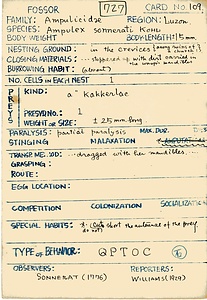 FOSSOR 727 CARD No. 109
FAMILY: Ampulicidae REGION: Luzon
SPECIES: Ampulex sonnerati Kohl
BODY WEIGHT BODY LENGTH: 15 mm
NESTING GROUND: in the crevices
CLOSING MATERIALS: stoppered up with dirt carried in
BURROWING HABIT: (absent)
NO. CELLS IN EACH NEST 1
PREYS
KIND:
a "Kakkerlac
PREYS NO. 1
WEIGHT OR SIZE: ± 25 mm long
PARALYSIS: partial paralysis MAX. DUR.
STINGING MALAXATION
TRANSP. METHOD: dragged with her mandibles.
GRASPING:
ROUTE:
EGG LOCATION:
COMPETITION COLONIZATION SOCIALIZATION
SPECIAL HABITS: short the antennae of the prey
TYPE OF BEHAVIOR: Q P T O C
OBSERVERS: REPORTERS:
SONNERAT (1776) WILLIAMS (1929)